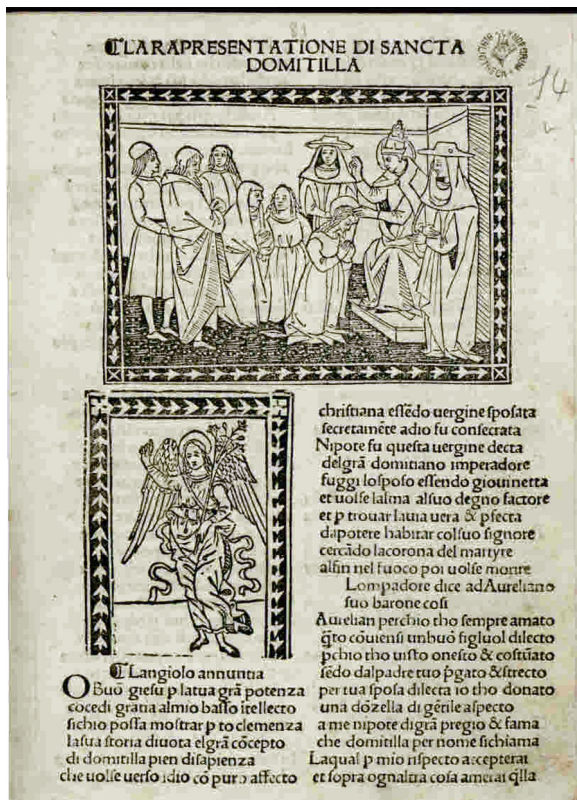 81
LA RAPRESENTATIONE DI SANCTA
DOMITILLA
14
Langiolo annuntia
O Buõ giesu p latua grã potenza
cõcedi gratia almio basso ītellecto
sichio possa mostrar p to clemenza
lasua storia diuota elgrã cõcepto
di domitilla pien disapienza
che uolse uerso idio cõ puro affecto
christiana essẽdo uergine sposata
secretamẽte adio fu consecrata
Nipote fu questa uergine decta
delgrã domitiano imperadore
fuggi losposo essendo giouinetta
et uolse lalma alsuo degno factore
et p trouar lauia uera & pfecta
dapotere habitar colsuo signore
cercãdo lacorona del martyre
alfin nel fuoco poi uolse morire
Lompadore dice ad Aureliano
suo barone cosi
Aurelian perchio tho sempre amato
q̃to cõuiensi unbuõ figluol dilecto
pchio tho uisto onesto & costũato
sẽdo dalpadre tuo p̃gato & strecto
per tua sposa dilecta io tho donato
una dõzella di gẽtile aspecto
a me nipote di grã pregio & fama
che domitilla per nome sichiama
Laqual p mio rispecto accepterai
et sopra ognaltra cosa amerai q̃lla